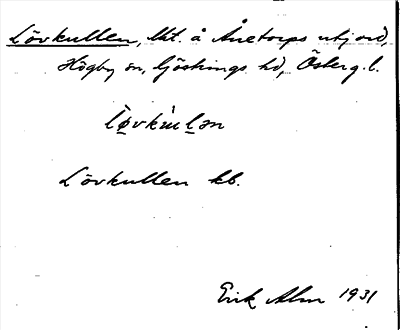 Lövkullen, lht. å Ånetorps utjord,
Högby sn, Göstrings hd, Österg. l.
lö̀vkùlən
Lövkullen kb.
Erik Alm 1931